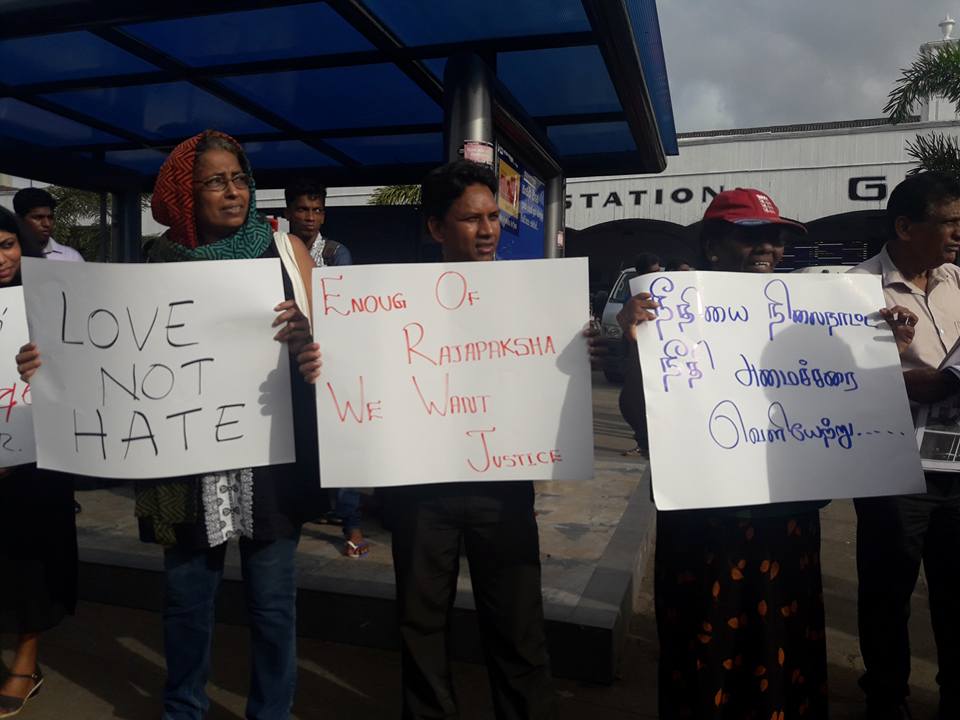 STATION G
LOVE
NOT
HATE
ENOUG OF
RAJAPAKSHA
WE WANT
JUSTICE
நீதியை நிலைநாட்ட
நீதி அமைச்சரை
வெளியேற்று.....
R.